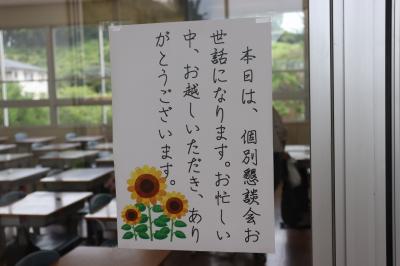 本日は、個別懇談会お
世話になります。お忙しい
中、お越しいただき、あり
がとうございます。